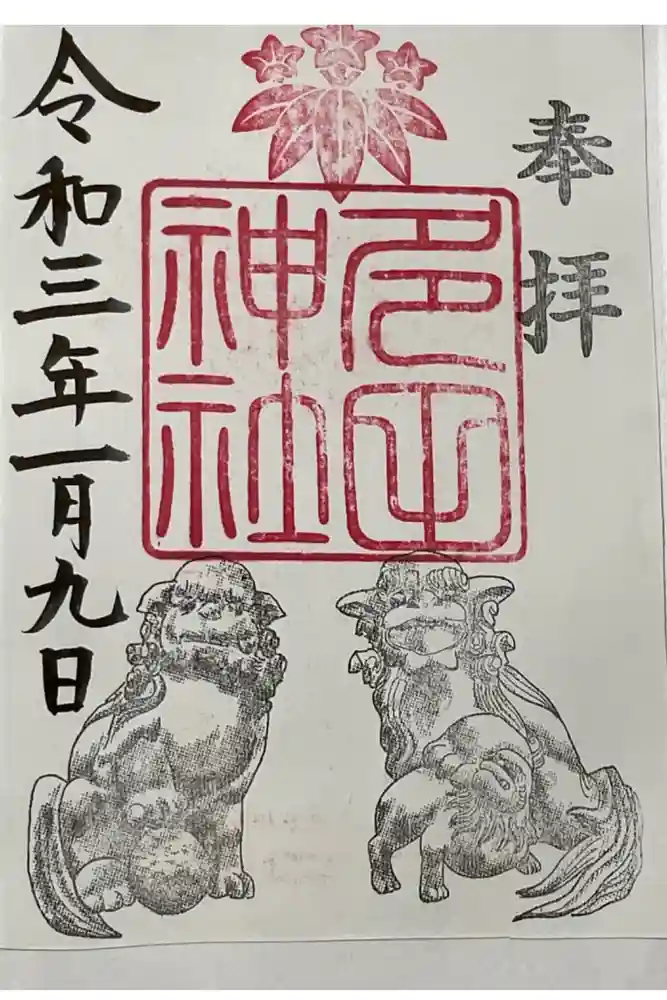 奉拝
多田
神社
令和三年一月九日